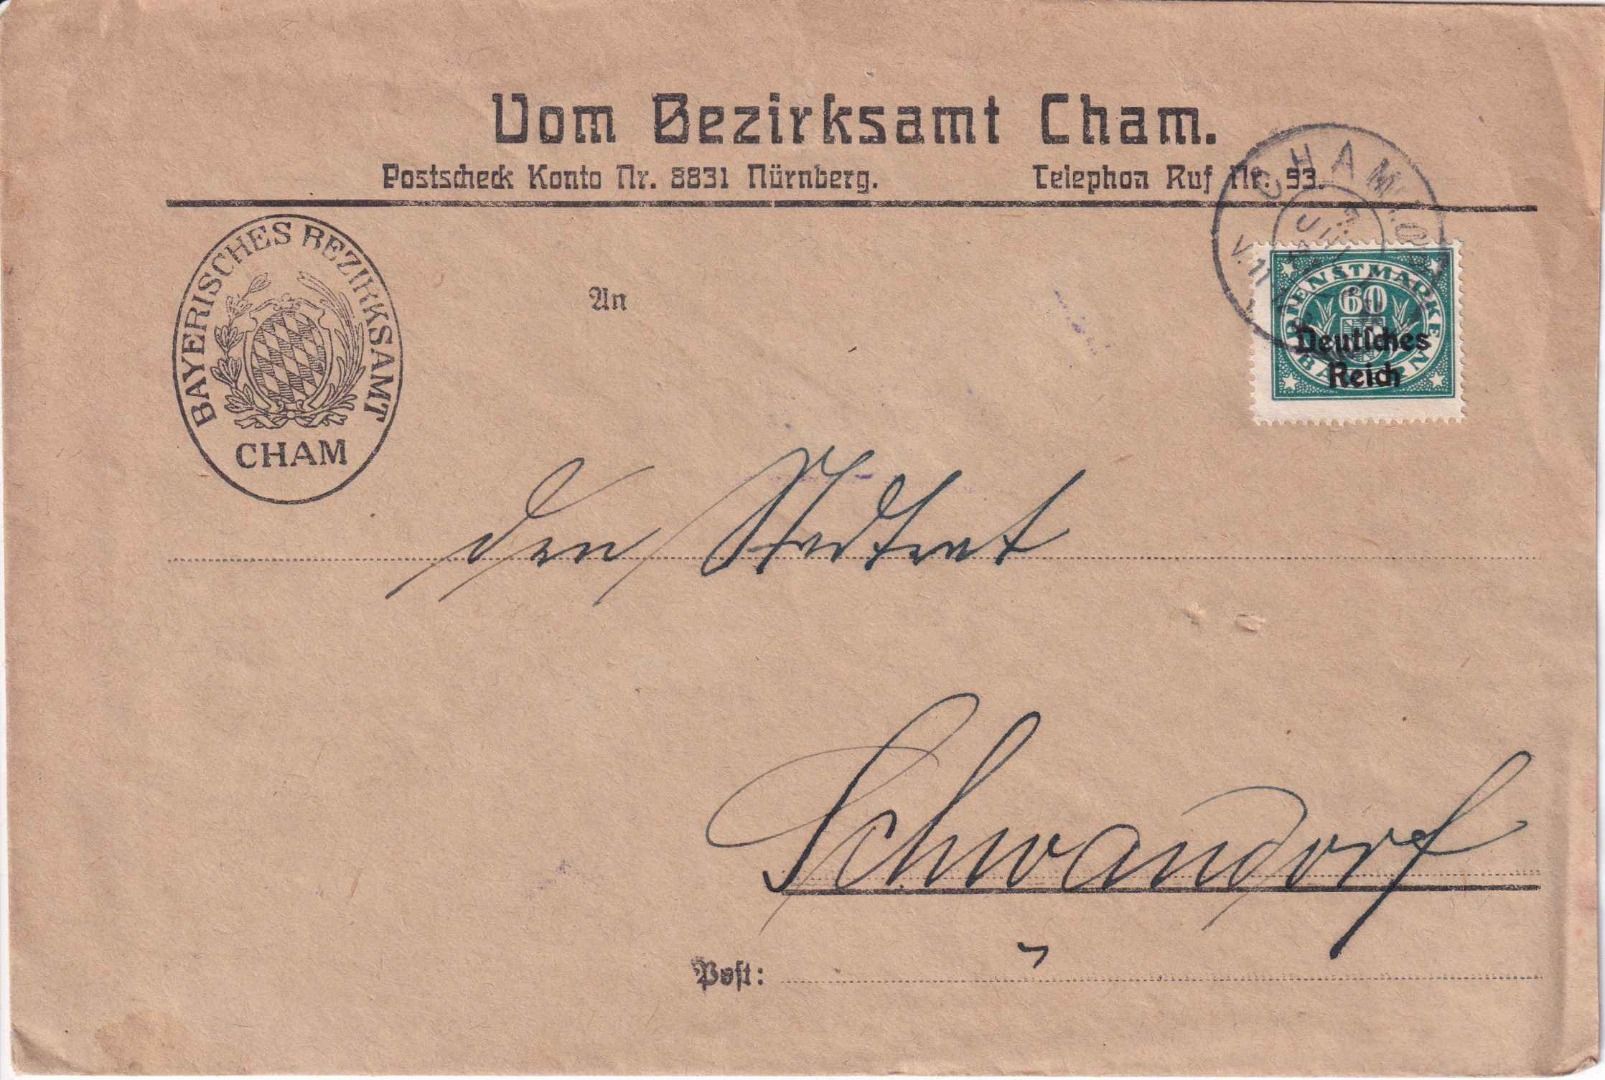 Vom Bezirksamt Cham.
Postscheck Konto Nr. 8831 Nürnberg. Telephon Ruf Nr. 93.
BAYERISCHES BEZIRKSAMT
CHAM
CHAM
DIENSTMARKE
60
Deutsches
Reich
BAYERN
An
den Stadtrat
Schwandorf
Post: